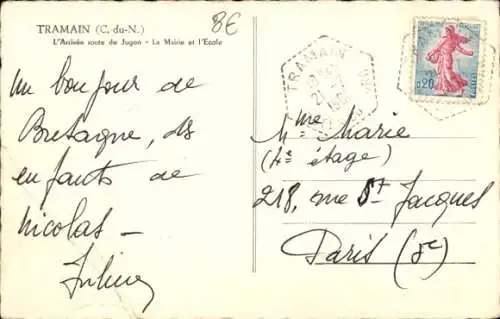 TRAMAIN (C. du-N.)
L'Arrivée route de Jugon - La Mairie et l'Ecole
8€
Un bonjour de
Bretagne, des
enfants de
Nicolas -
TRAMAIN
21
0,20
Mme Marie
(4e étage)
218, rue St Jacques
Paris (5e)